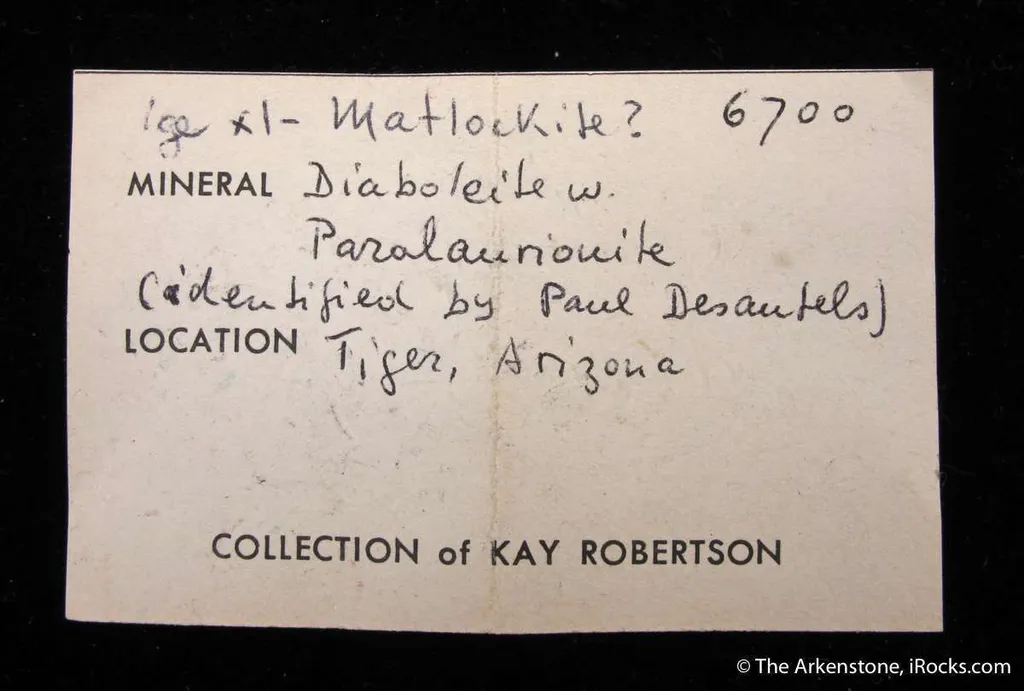 lge xl- Matlockite? 6700
MINERAL Diaboleite w.
Paralaurionite
(identified by Paul Desautels)
LOCATION Tiger, Arizona
COLLECTION of KAY ROBERTSON
© The Arkenstone, iRocks.com